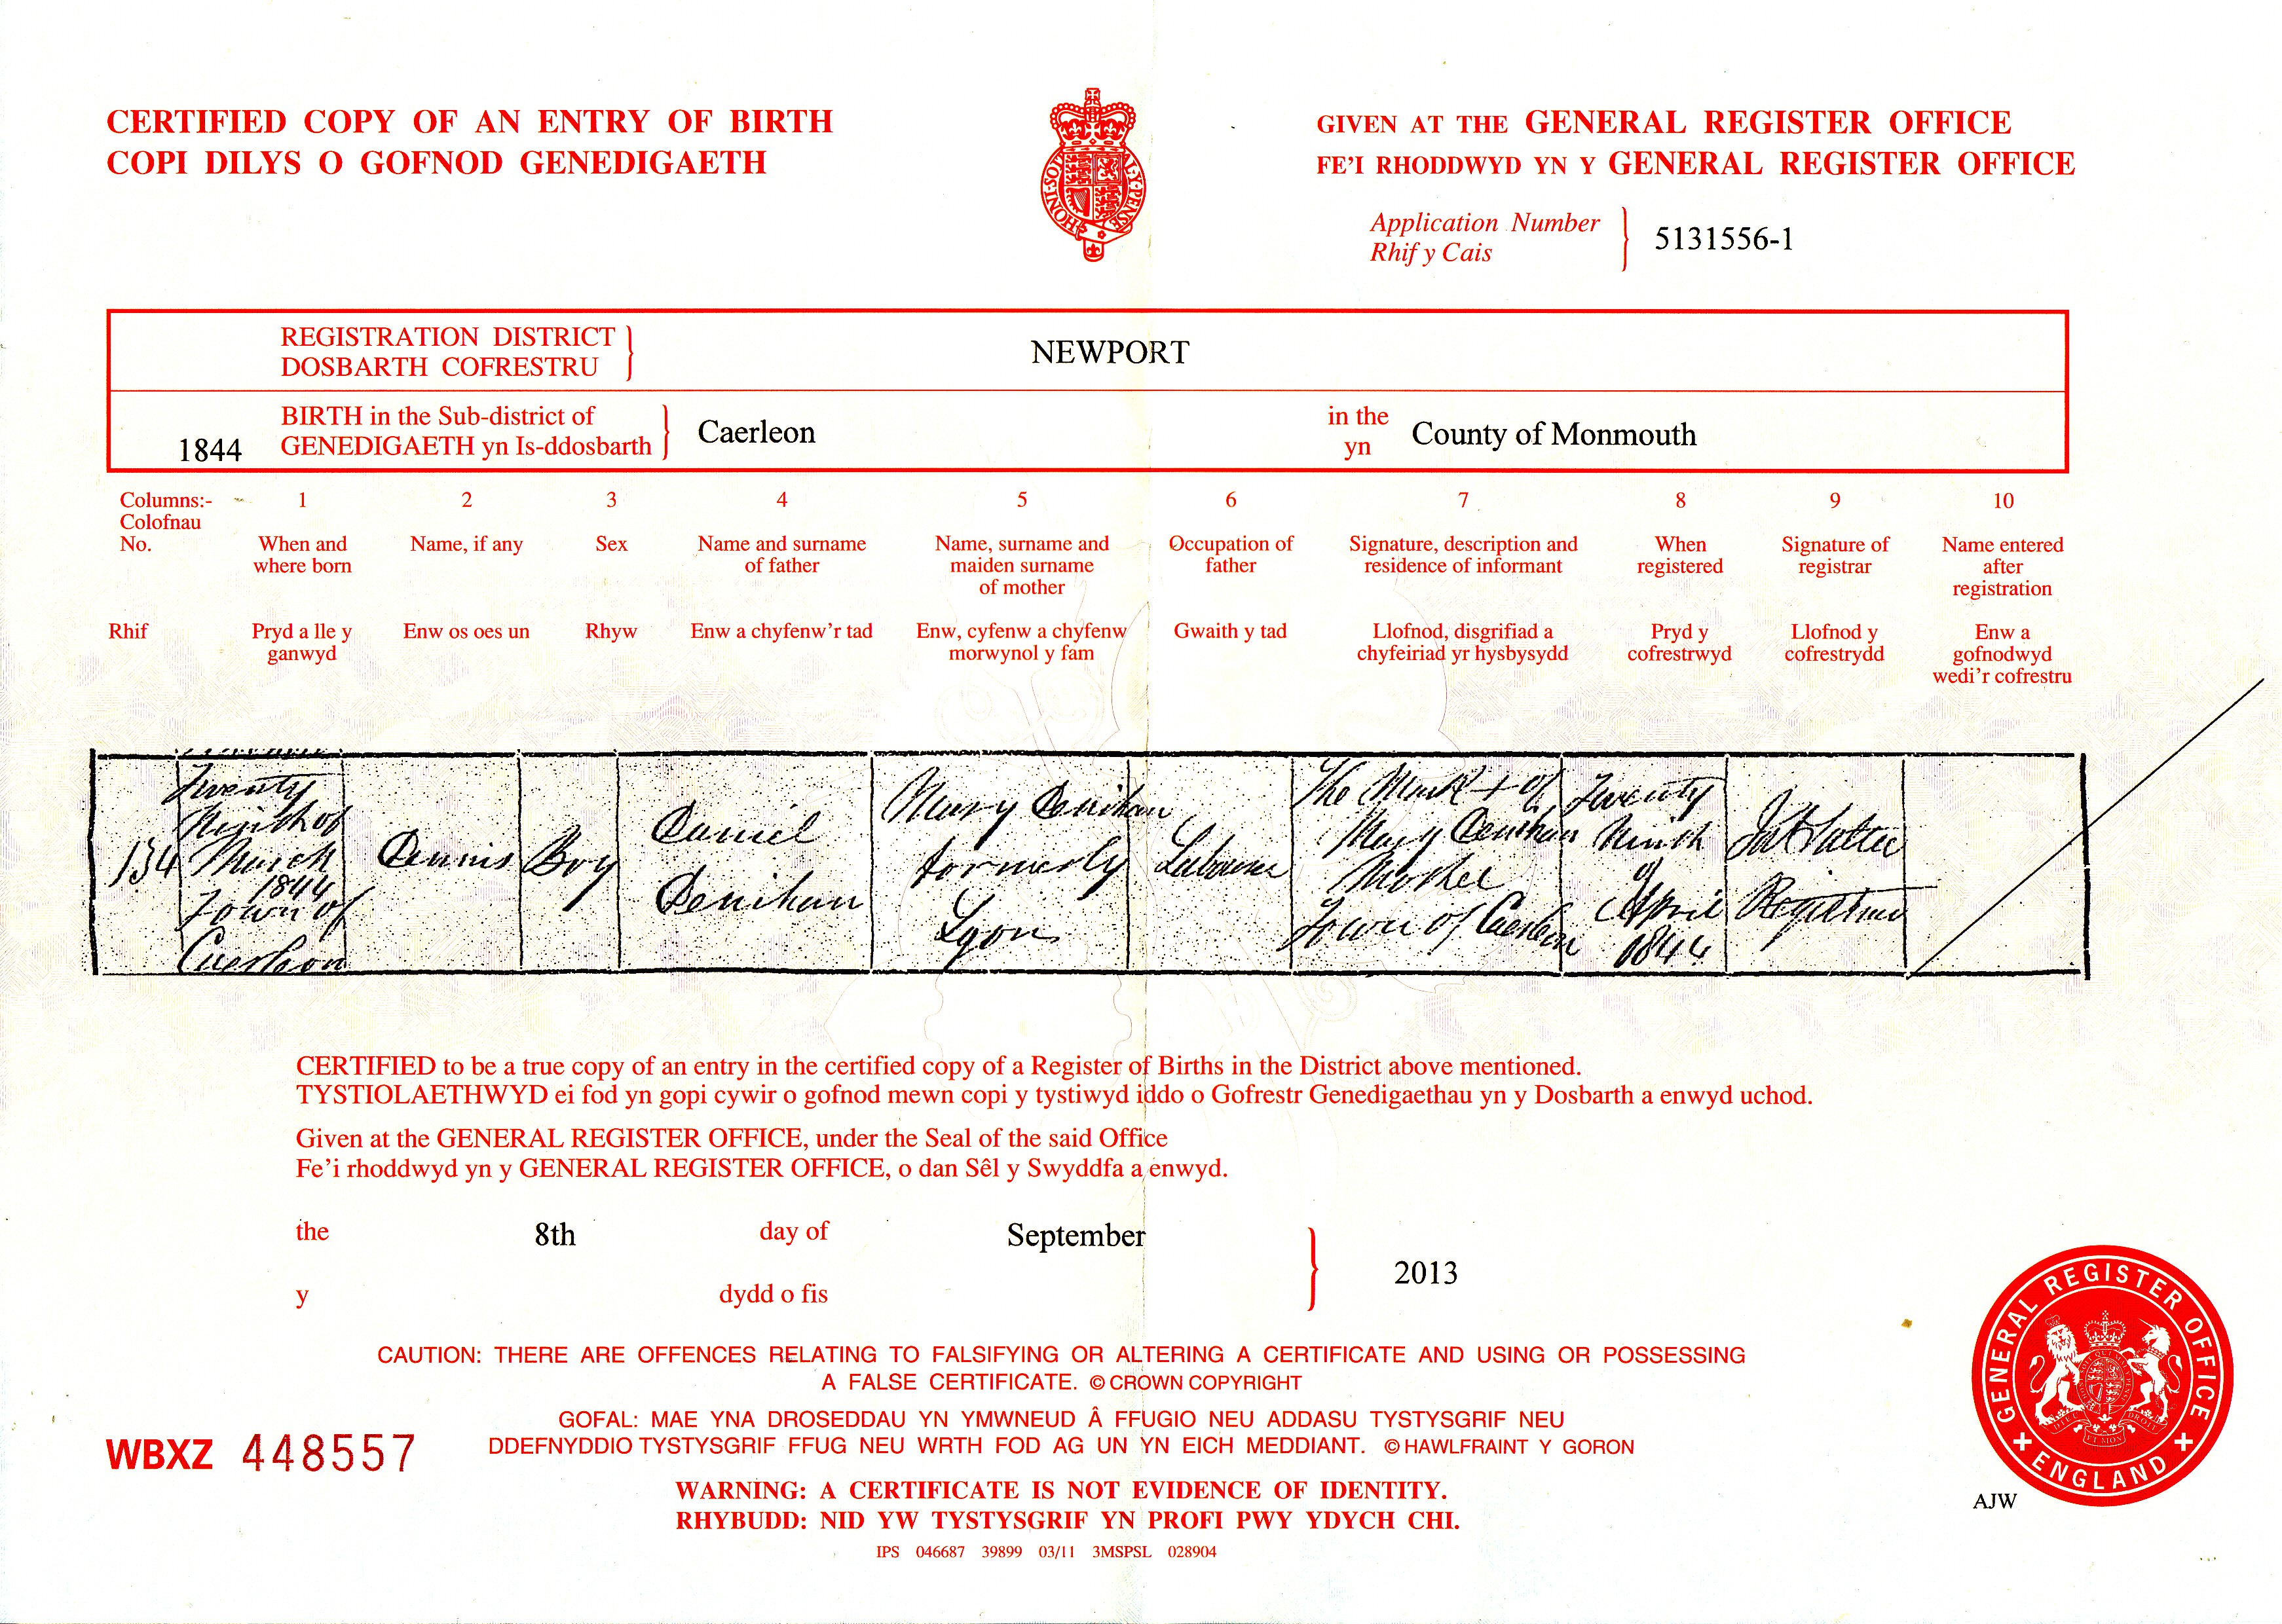 CERTIFIED COPY OF AN ENTRY OF BIRTH
COPI DILYS O GOFNOD GENEDIGAETH
HONI·SOIT·QUI·MAL·Y·PENSE
GIVEN AT THE GENERAL REGISTER OFFICE
FE'I RHODDWYD YN Y GENERAL REGISTER OFFICE
Application Number
Rhif y Cais
5131556-1
REGISTRATION DISTRICT
DOSBARTH COFRESTRU
NEWPORT
1844
BIRTH in the Sub-district of
GENEDIGAETH yn Is-ddosbarth
Caerleon
in the
yn
County of Monmouth
Columns:-
Colofnau
No.
Rhif
1
When and
where born
Pryd a lle y
ganwyd
2
Name, if any
Enw os oes un
3
Sex
Rhyw
4
Name and surname
of father
Enw a chyfenw'r tad
5
Name, surname and
maiden surname
of mother
Enw, cyfenw a chyfenw
morwynol y fam
6
Occupation of
father
Gwaith y tad
7
Signature, description and
residence of informant
Llofnod, disgrifiad a
chyfeiriad yr hysbysydd
8
When
registered
Pryd y
cofrestrwyd
9
Signature of
registrar
Llofnod y
cofrestrydd
10
Name entered
after
registration
Enw a
gofnodwyd
wedi'r cofrestru
134
Twenty
Ninth of
March
1844
Town of
Caerleon
Dennis
Boy
Daniel
Denihan
Mary Denihan
formerly
Lyon
Labourer
The Mark + of
Mary Denihan
Mother
Town of Caerleon
Twenty
Ninth
of
April
1844
Registrar
CERTIFIED to be a true copy of an entry in the certified copy of a Register of Births in the District above mentioned.
TYSTIOLAETHWYD ei fod yn gopi cywir o gofnod mewn copi y tystiwyd iddo o Gofrestr Genedigaethau yn y Dosbarth a enwyd uchod.
Given at the GENERAL REGISTER OFFICE, under the Seal of the said Office
Fe'i rhoddwyd yn y GENERAL REGISTER OFFICE, o dan Sêl y Swyddfa a enwyd.
the 8th day of September
y dydd o fis
2013
CAUTION: THERE ARE OFFENCES RELATING TO FALSIFYING OR ALTERING A CERTIFICATE AND USING OR POSSESSING
A FALSE CERTIFICATE. © CROWN COPYRIGHT
GOFAL: MAE YNA DROSEDDAU YN YMWNEUD Â FFUGIO NEU ADDASU TYSTYSGRIF NEU
DDEFNYDDIO TYSTYSGRIF FFUG NEU WRTH FOD AG UN YN EICH MEDDIANT. © HAWLFRAINT Y GORON
WBXZ 448557
WARNING: A CERTIFICATE IS NOT EVIDENCE OF IDENTITY.
RHYBUDD: NID YW TYSTYSGRIF YN PROFI PWY YDYCH CHI.
IPS 046687 39899 03/11 3MSPSL 028904
GENERAL REGISTER OFFICE
ENGLAND
DIEU ET MON DROIT
AJW